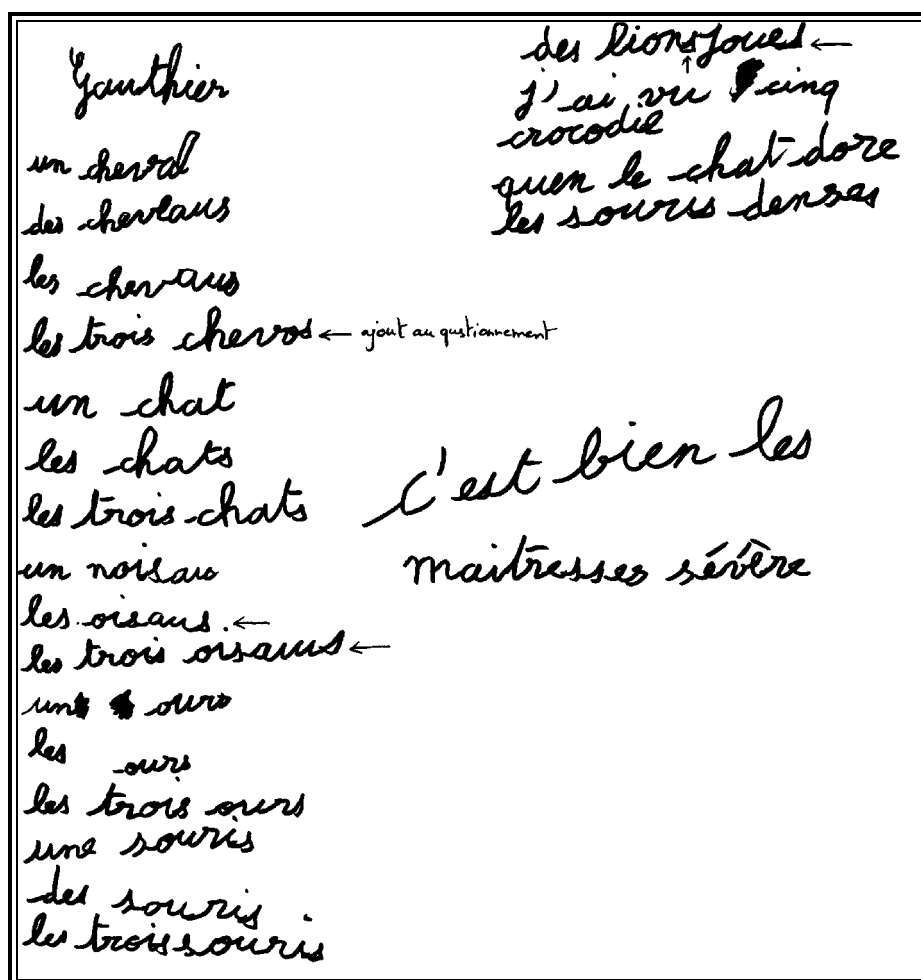 Gauthier
un cheval
des chevaus
les chevaus
les trois chevos ← ajout au qustionnement
un chat
les chats
les trois chats
un noisau
les oisaus. ←
les trois oisaus ←
un ours
les ours
les trois ours
une souris
des souris
les trois souris
des lions joues ←
j'ai vu cinq
crocodil
quen le chat dore
les souris denses
c'est bien les
maitresses sévère